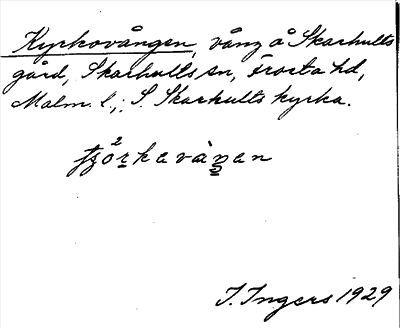 Kyrkovången, vång å Skarhults
gård, Skarhults sn, Frosta hd,
Malm. l.; S. Skarhults kyrka.
I. Ingers 1929